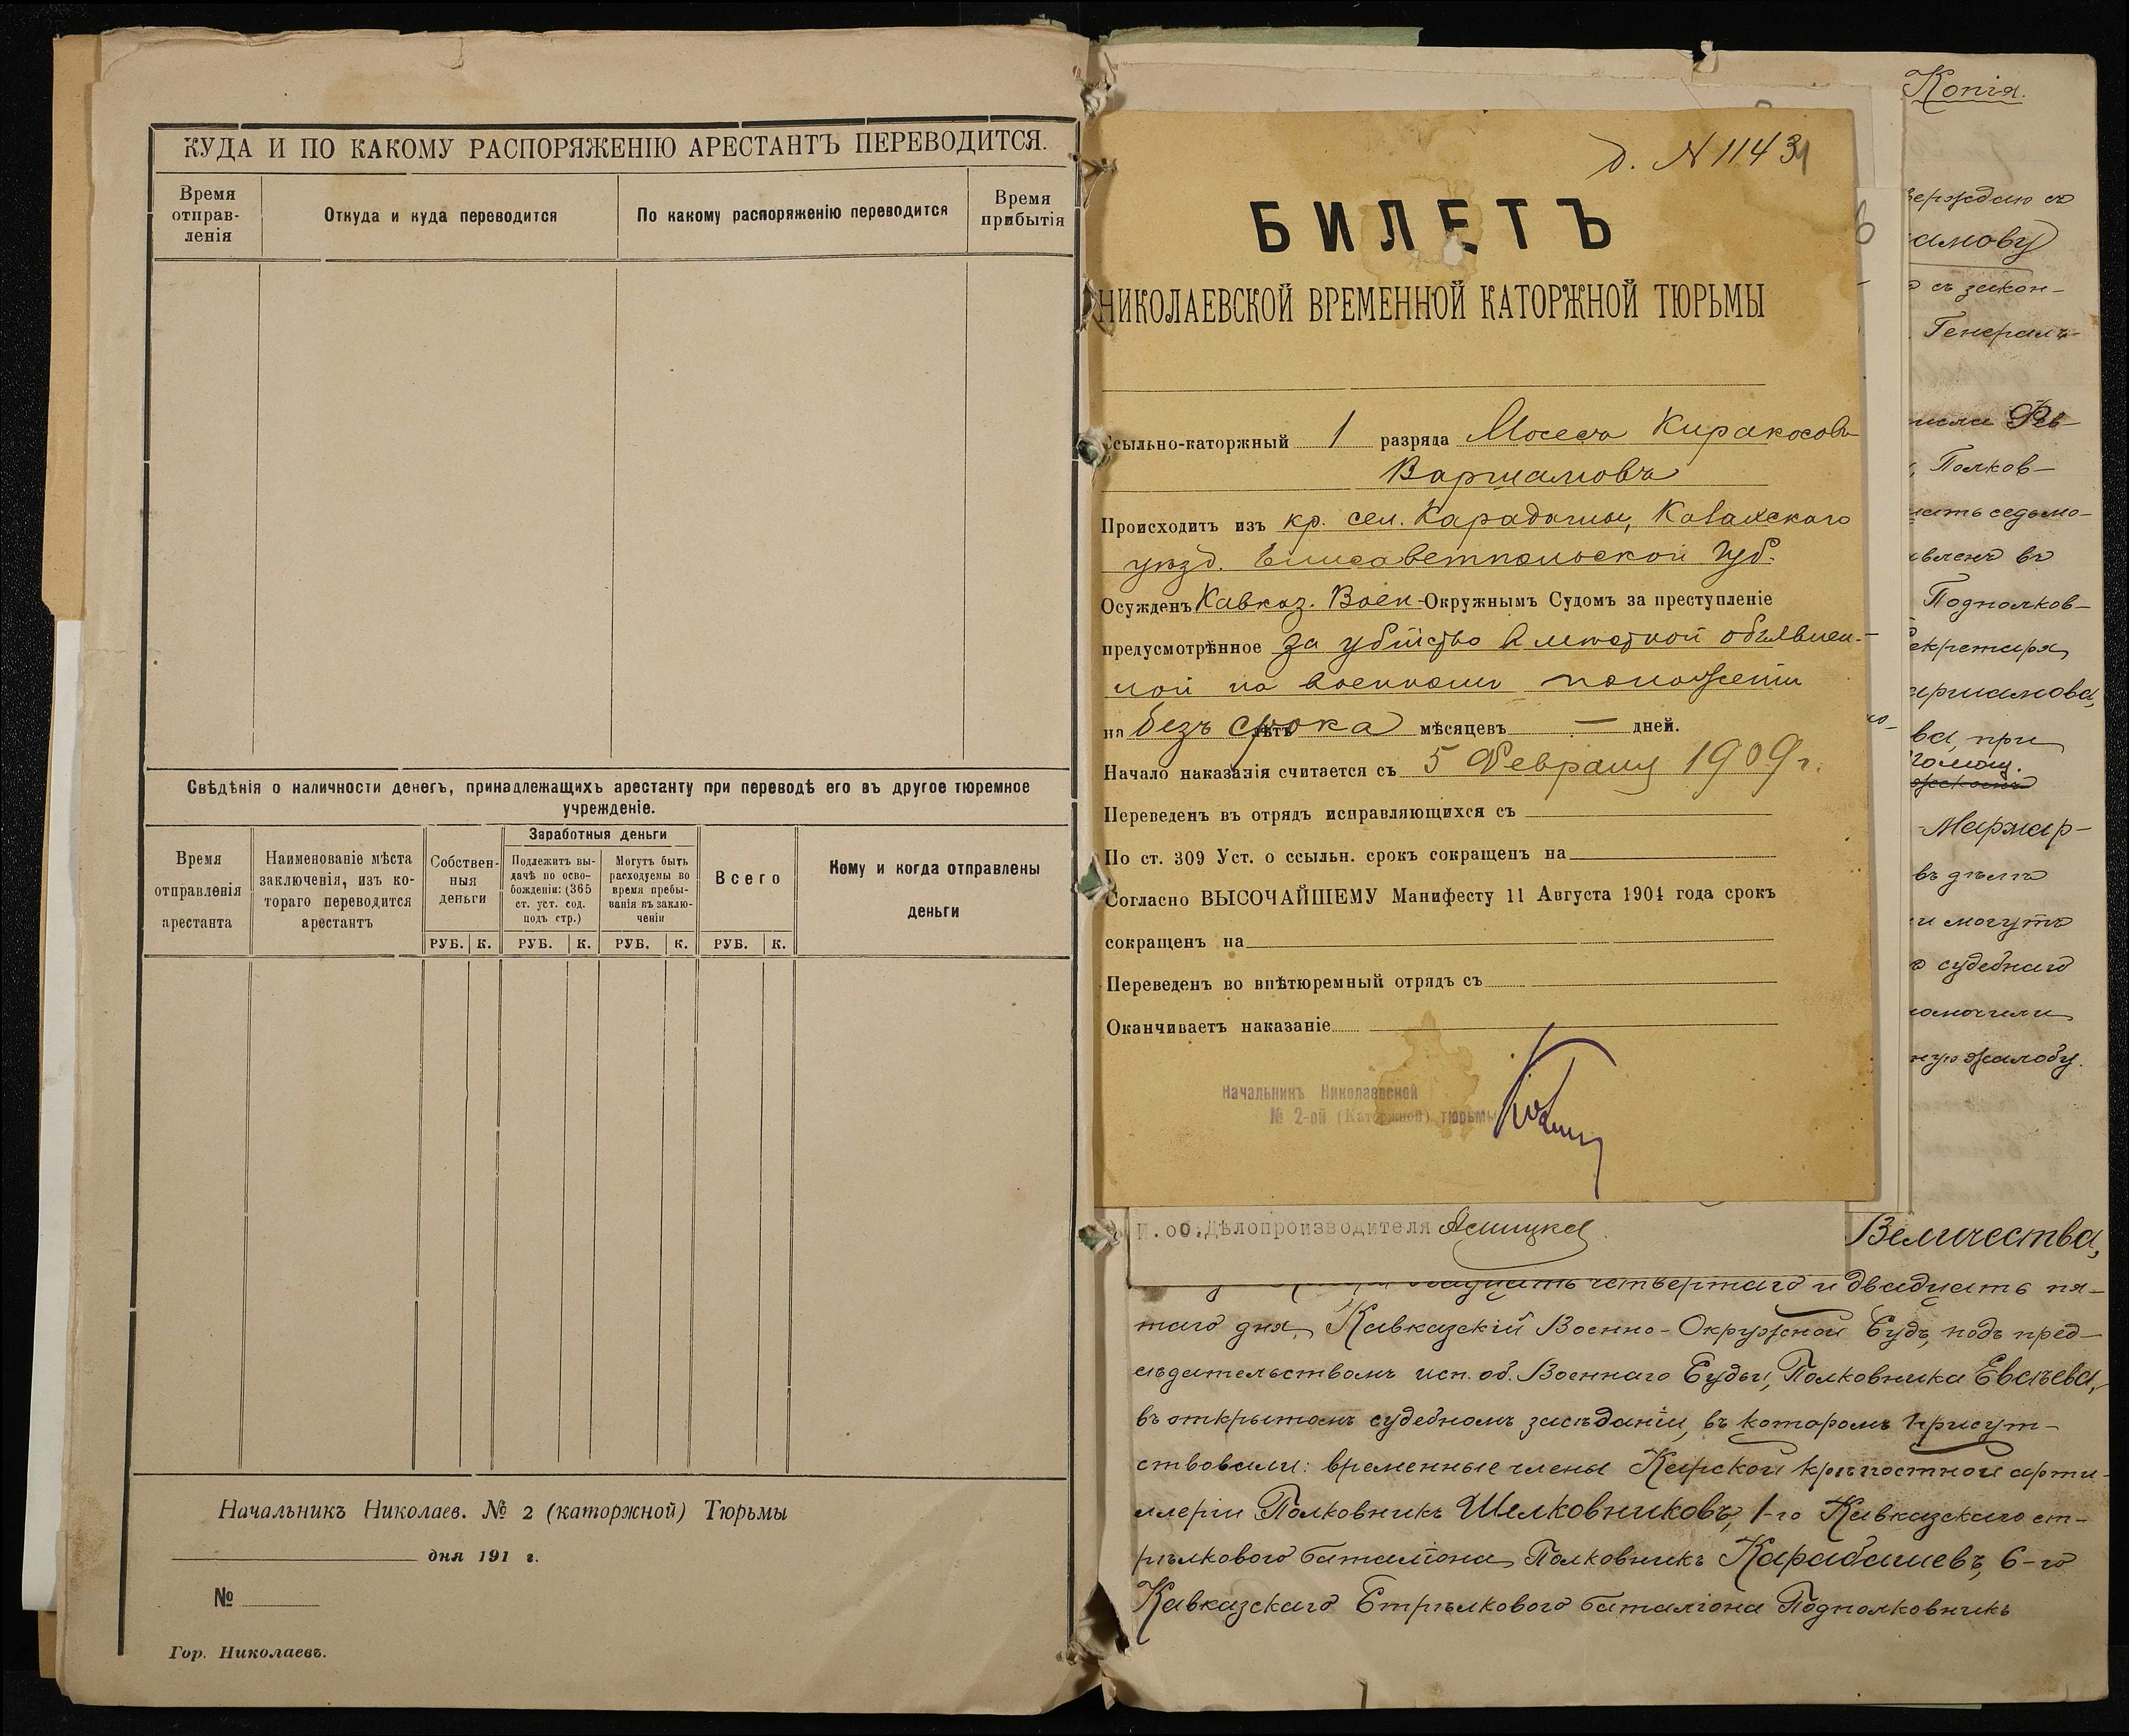 КУДА И ПО КАКОМУ РАСПОРЯЖЕНІЮ АРЕСТАНТЪ ПЕРЕВОДИТСЯ.
Время отправ-
ленія
Откуда и куда переводится
По какому распоряженію переводится
Время
прибытія
Свѣдѣнія о наличности денегъ, принадлежащихъ арестанту при переводѣ его въ другое тюремное
учрежденіе.
Время
отправленія
арестанта
Наименованіе мѣста
заключенія, изъ ко-
тораго переводится
арестантъ
Собствен-
ныя
деньги
Заработныя деньги
Подлежитъ вы-
дачѣ по осво-
божденіи: (365
ст. уст. сод.
подъ стр.)
Могутъ быть
расходуемы во
время пребы-
ванія въ заклю-
ченіи
Всего
Кому и когда отправлены
деньги
РУБ. К. РУБ. К. РУБ. К. РУБ. К.
Начальникъ Николаев. № 2 (каторжной) Тюрьмы
дня 191 г.
№
Гор. Николаевъ.
д. N 11431
БИЛЕТЪ
НИКОЛАЕВСКОЙ ВРЕМЕННОЙ КАТОРЖНОЙ ТЮРЬМЫ
Ссыльно-каторжный 1 разряда Мосесъ Киракосовъ
Варшамовъ
Происходитъ изъ кр. сел. Карадагны, Казахскаго
уѣзд. Елисаветпольской Губ.
Осужденъ Кавказ. Воен-Окружнымъ Судомъ за преступленіе
предусмотрѣнное за убійство в мѣстной объявлен-
ной на военномъ положеніи
на безъ срока лѣтъ мѣсяцевъ — дней.
Начало наказанія считается съ 5 Февраля 1909 г.
Переведенъ въ отрядъ исправляющихся съ
По ст. 309 Уст. о ссыльн. срокъ сокращенъ на
Согласно ВЫСОЧАЙШЕМУ Манифесту 11 Августа 1904 года срокъ
сокращенъ на
Переведенъ во внѣтюремный отрядъ съ
Оканчиваетъ наказаніе
Начальникъ Николаевской
№ 2-ой (Каторжной) тюрьмы
И.об.Дѣлопроизводителя
Копія.
верждаю съ
амову
съ закон-
Генералъ-
Полков-
шать седьмо-
явленъ въ
Подполков-
екретаря
аршамова,
ва, при
Мармар-
въ дѣлѣ
и могутъ
судебнаго
ную жалобу.
Величества,
адцать четвертаго и двадцать пя-
таго дня, Кавказскій Военно-Окружной Судъ, подъ пред-
сѣдательствомъ исп. об. Военнаго Судьи, Полковника Евсѣева,
въ открытомъ судебномъ засѣданіи, въ которомъ присут-
ствовали: временные члены Карской крѣпостной арти-
ллеріи Полковникъ Шелковниковъ, 1-го Кавказскаго ст-
рѣлковаго баталіона Полковникъ Карабашевъ, 6-го
Кавказскаго Стрѣлковаго баталіона Подполковникъ